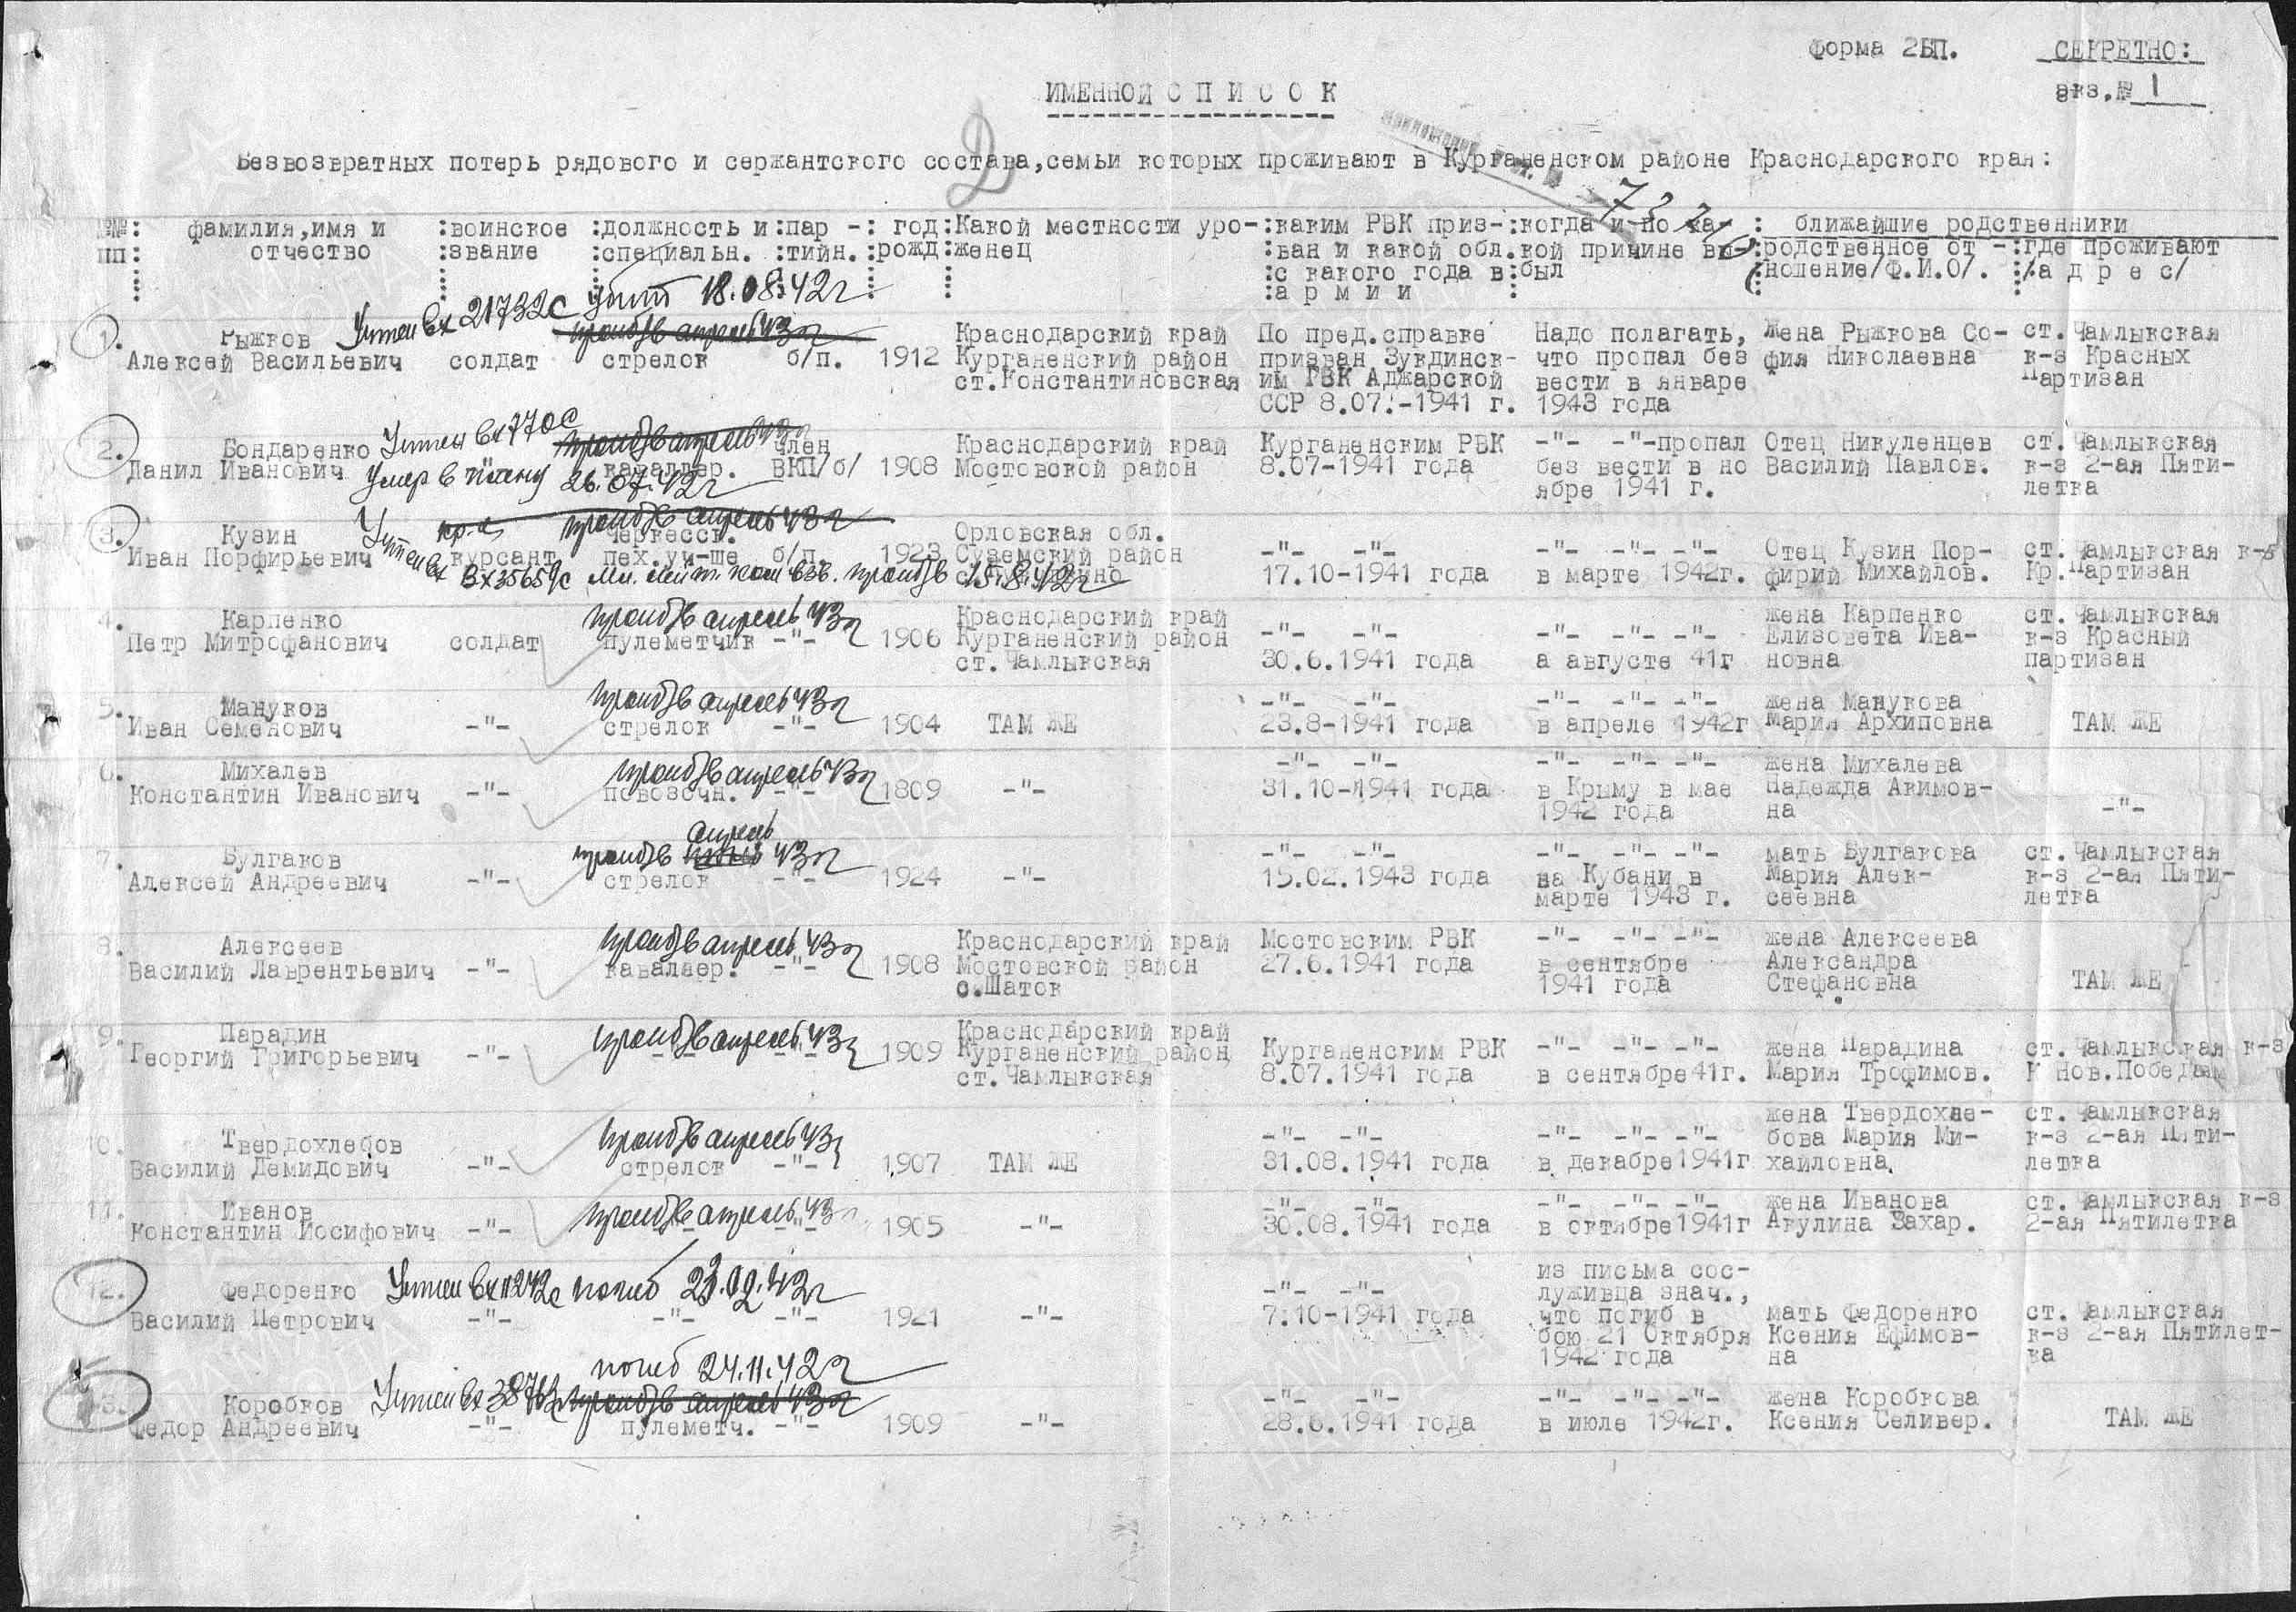 Форма 2БП. СЕКРЕТНО:
экз.№ 1
ИМЕННОЙ С П И С О К
Безвозвратных потерь рядового и сержантского состава,семьи которых проживают в Курганенском районе Краснодарского края:
№№: фамилия,имя и :воинское :должность и :пар -: год:Какой местности уро-:каким РВК приз-:когда и по ка- : ближайшие родственники
пп: отчество :звание :специальн. :тийн.:рожд:женец :ван и какой обл.кой причине вы-:родственное от -:где проживают
:с какого года в:был :ношение/Ф.И.О/. :/а д р е с/
:а р м и и
Учтен Вх 21732с убит 18.08.42г
1. Рыжков пропб/в апрель 43г Краснодарский край По пред.справке Надо полагать, жена Рыжкова Со- ст.Чамлыкская
Алексей Васильевич солдат стрелок б/п. 1912 Курганенский район призван Зукдинск- что пропал без фия Николаевна к-з Красных
ст.Константиновская им РВК Аджарской вести в январе Партизан
ССР 8.07.-1941 г. 1943 года
2. Бондаренко Учтен Вх770с пропб/в апрель 43г член Краснодарский край Курганенским РВК -"- -"-пропал Отец Никуленцев ст.Чамлыкская
Данил Иванович кавалер. ВКП/б/ 1908 Мостовской район 8.07-1941 года без вести в но Василий Павлов. к-з 2-ая Пяти-
Умер в плену 26.07.42г ябре 1941 г. летка
3. Кузин Учтен Вх кр-ц пропб/в апрель 43г Черкесск. Орловская обл.
Иван Порфирьевич курсант пех.уч-ще б/п. 1923 Суземский район -"- -"- -"- -"- -"- Отец Кузин Пор- ст.Чамлыкская к-з
Вх35659с Мл. лейт. ком взв. пропб/в 15.8.42г 17.10-1941 года в марте 1942г. фирий Михайлов. Кр.Партизан
4. Карпенко пропб/в апрель 43г Краснодарский край жена Карпенко ст.Чамлыкская
Петр Митрофанович солдат пулеметчик -"- 1906 Курганенский район -"- -"- -"- -"- -"- Елизовета Ива- к-з Красный
ст.Чамлыкская 30.6.1941 года а августе 41г новна партизан
5. Мануков пропб/в апрель 43г -"- -"- -"- -"- -"- жена Манукова
Иван Семенович -"- стрелок -"- 1904 ТАМ ЖЕ 23.8-1941 года в апреле 1942г Мария Архиповна ТАМ ЖЕ
6. Михалев пропб/в апрель 43г -"- -"- -"- -"- -"- жена Михалева
Константин Иванович -"- повозочн. -"- 1809 -"- 31.10-1941 года в Крыму в мае Надежда Акимов-
1942 года на -"-
апрель
7. Булгаков пропб/в 43г -"- -"- -"- -"- -"- мать Булгакова ст.Чамлыкская
Алексей Андреевич -"- стрелок -"- 1924 -"- 15.02.1943 года на Кубани в Мария Алек- к-з 2-ая Пяти-
марте 1943 г. сеевна летка
8. Алексеев пропб/в апрель 43г Краснодарский край Мостовским РВК -"- -"- -"- жена Алексеева
Василий Лаврентьевич -"- кавалаер. -"- 1908 Мостовской район 27.6.1941 года в сентябре Александра
с.Шаток 1941 года Стефановна ТАМ ЖЕ
9. Парадин пропб/в апрель 43г Краснодарский край
Георгий Григорьевич -"- -"- -"- 1909 Курганенский район Курганенским РВК -"- -"- -"- жена Парадина ст.Чамлыкская к-з
ст.Чамлыкская 8.07.1941 года в сентябре41г. Мария Трофимов. К Нов.Победам
10. Твердохлебов пропб/в апрель 43г -"- -"- -"- -"- -"- жена Твердохле- ст.Чамлыкская
бова Мария Ми- к-з 2-ая Пяти-
Василий Демидович -"- стрелок -"- 1907 ТАМ ЖЕ 31.08.1941 года в декабре1941г хайловна. летка
11. Иванов пропб/в апрель 43г -"- -"- -"- -"- -"- жена Иванова ст.Чамлыкская к-з
Константин Иосифович -"- -"- -"- 1905 -"- 30.08.1941 года в октябре1941г Акулина Захар. 2-ая Пятилетка
12. Федоренко Учтен Вх11242с погиб 23.09.42г -"- -"- из письма сос-
луживца знач.,
Василий Петрович -"- -"- -"- 1921 -"- 7.10-1941 года что погиб в мать Федоренко ст.Чамлыкская
бою 21 Октября Ксения Ефимов- к-з 2-ая Пятилет-
1942 года на ка
погиб 24.11.42г
13. Коробков Учтен Вх 38763с пропб/в апрель 43г -"- -"- -"- -"- -"- жена Коробкова
Федор Андреевич -"- пулеметч. -"- 1909 -"- 28.6.1941 года в июле 1942г. Ксения Селивер. ТАМ ЖЕ